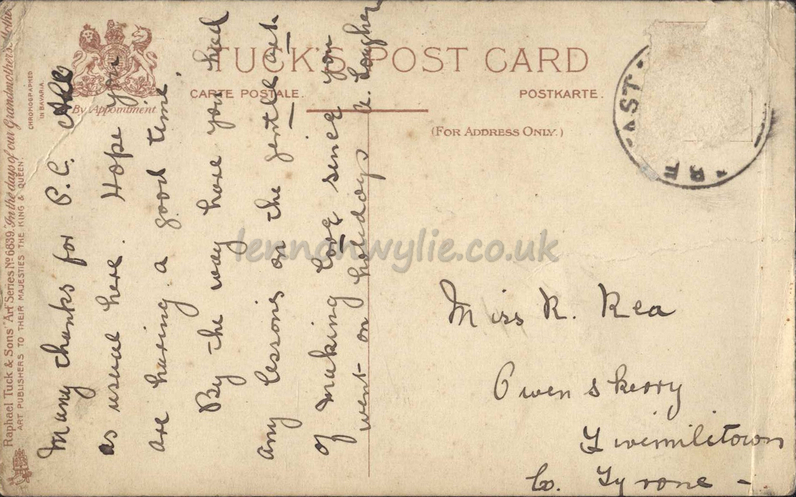 TUCK'S POST CARD
CARTE POSTALE.
POSTKARTE.
(FOR ADDRESS ONLY.)
By Appointment
CHROMOGRAPHED
IN BAVARIA
Raphael Tuck & Sons' "Art" Series No 6839. "In the days of our Grandmothers."
ART PUBLISHERS TO THEIR MAJESTIES THE KING & QUEEN.
Many thanks for P.C. All
as usual here. Hope you
are having a good time.
By the way have you had
any lessons on the gentle art
of making love since you
went on holidays
Miss R. Rea
Owenskerry
Fivemiletown
Co. Tyrone -
AST
lennonwylie.co.uk